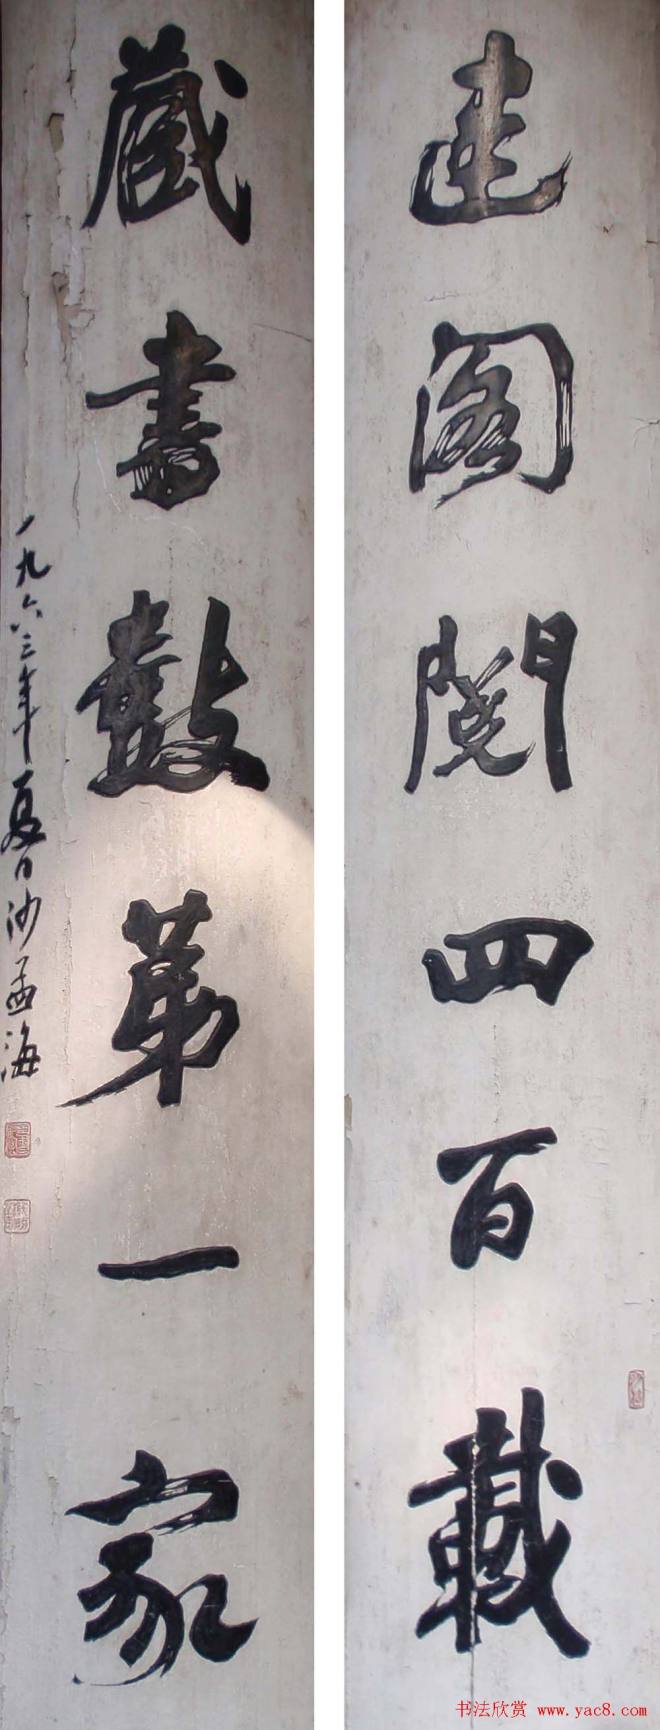 建阁阅四百载
藏书数第一家
一九六三年夏日沙孟海
书法欣赏 www.yac8.com